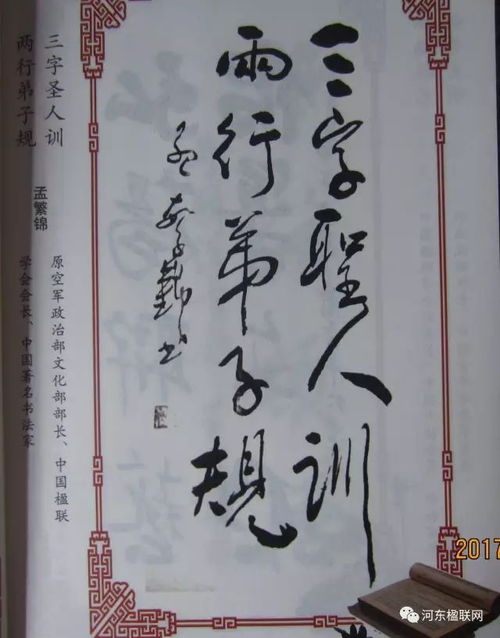 三字聖人訓
兩行弟子規
孟繁錦书
三字圣人训
两行弟子规
孟繁锦
原空军政治部文化部部长、中国楹联
学会会长、中国著名书法家
2017
河东楹联网